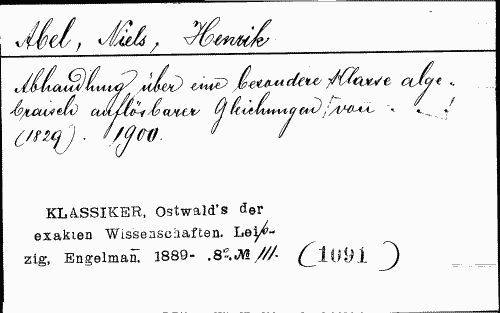 Abel, Niels, Henrik
Abhandlung über eine besondere Klasse alge-
braisch auflösbarer Gleichungen von . . !
(1829). 1900.
KLASSIKER, Ostwald's der
exakten Wissenschaften. Leip-
zig, Engelman̄. 1889- .8º. № 111. (1091)